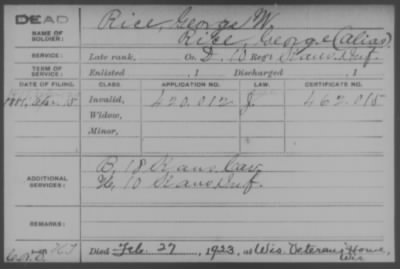 DEAD
NAME OF SOLDIER: Rice, George W.
Rice, George (alias)
SERVICE: Late rank, Co. D, 10 Reg't Kans. Inf.
TERM OF SERVICE: Enlisted , 1 Discharged , 1
DATE OF FILING. CLASS. APPLICATION NO. LAW. CERTIFICATE NO.
Invalid, 420.012 J. 462.015
Widow,
Minor,
ADDITIONAL SERVICES: B, 18 Kans Cav.
10 Kans Inf.
REMARKS:
Died Feb. 27, 1923, at Wis. Veterans Home,
Wis